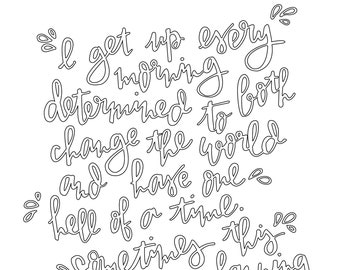 I get up every
morning
determined to both
change the world
and have one
hell of a time.
Sometimes this